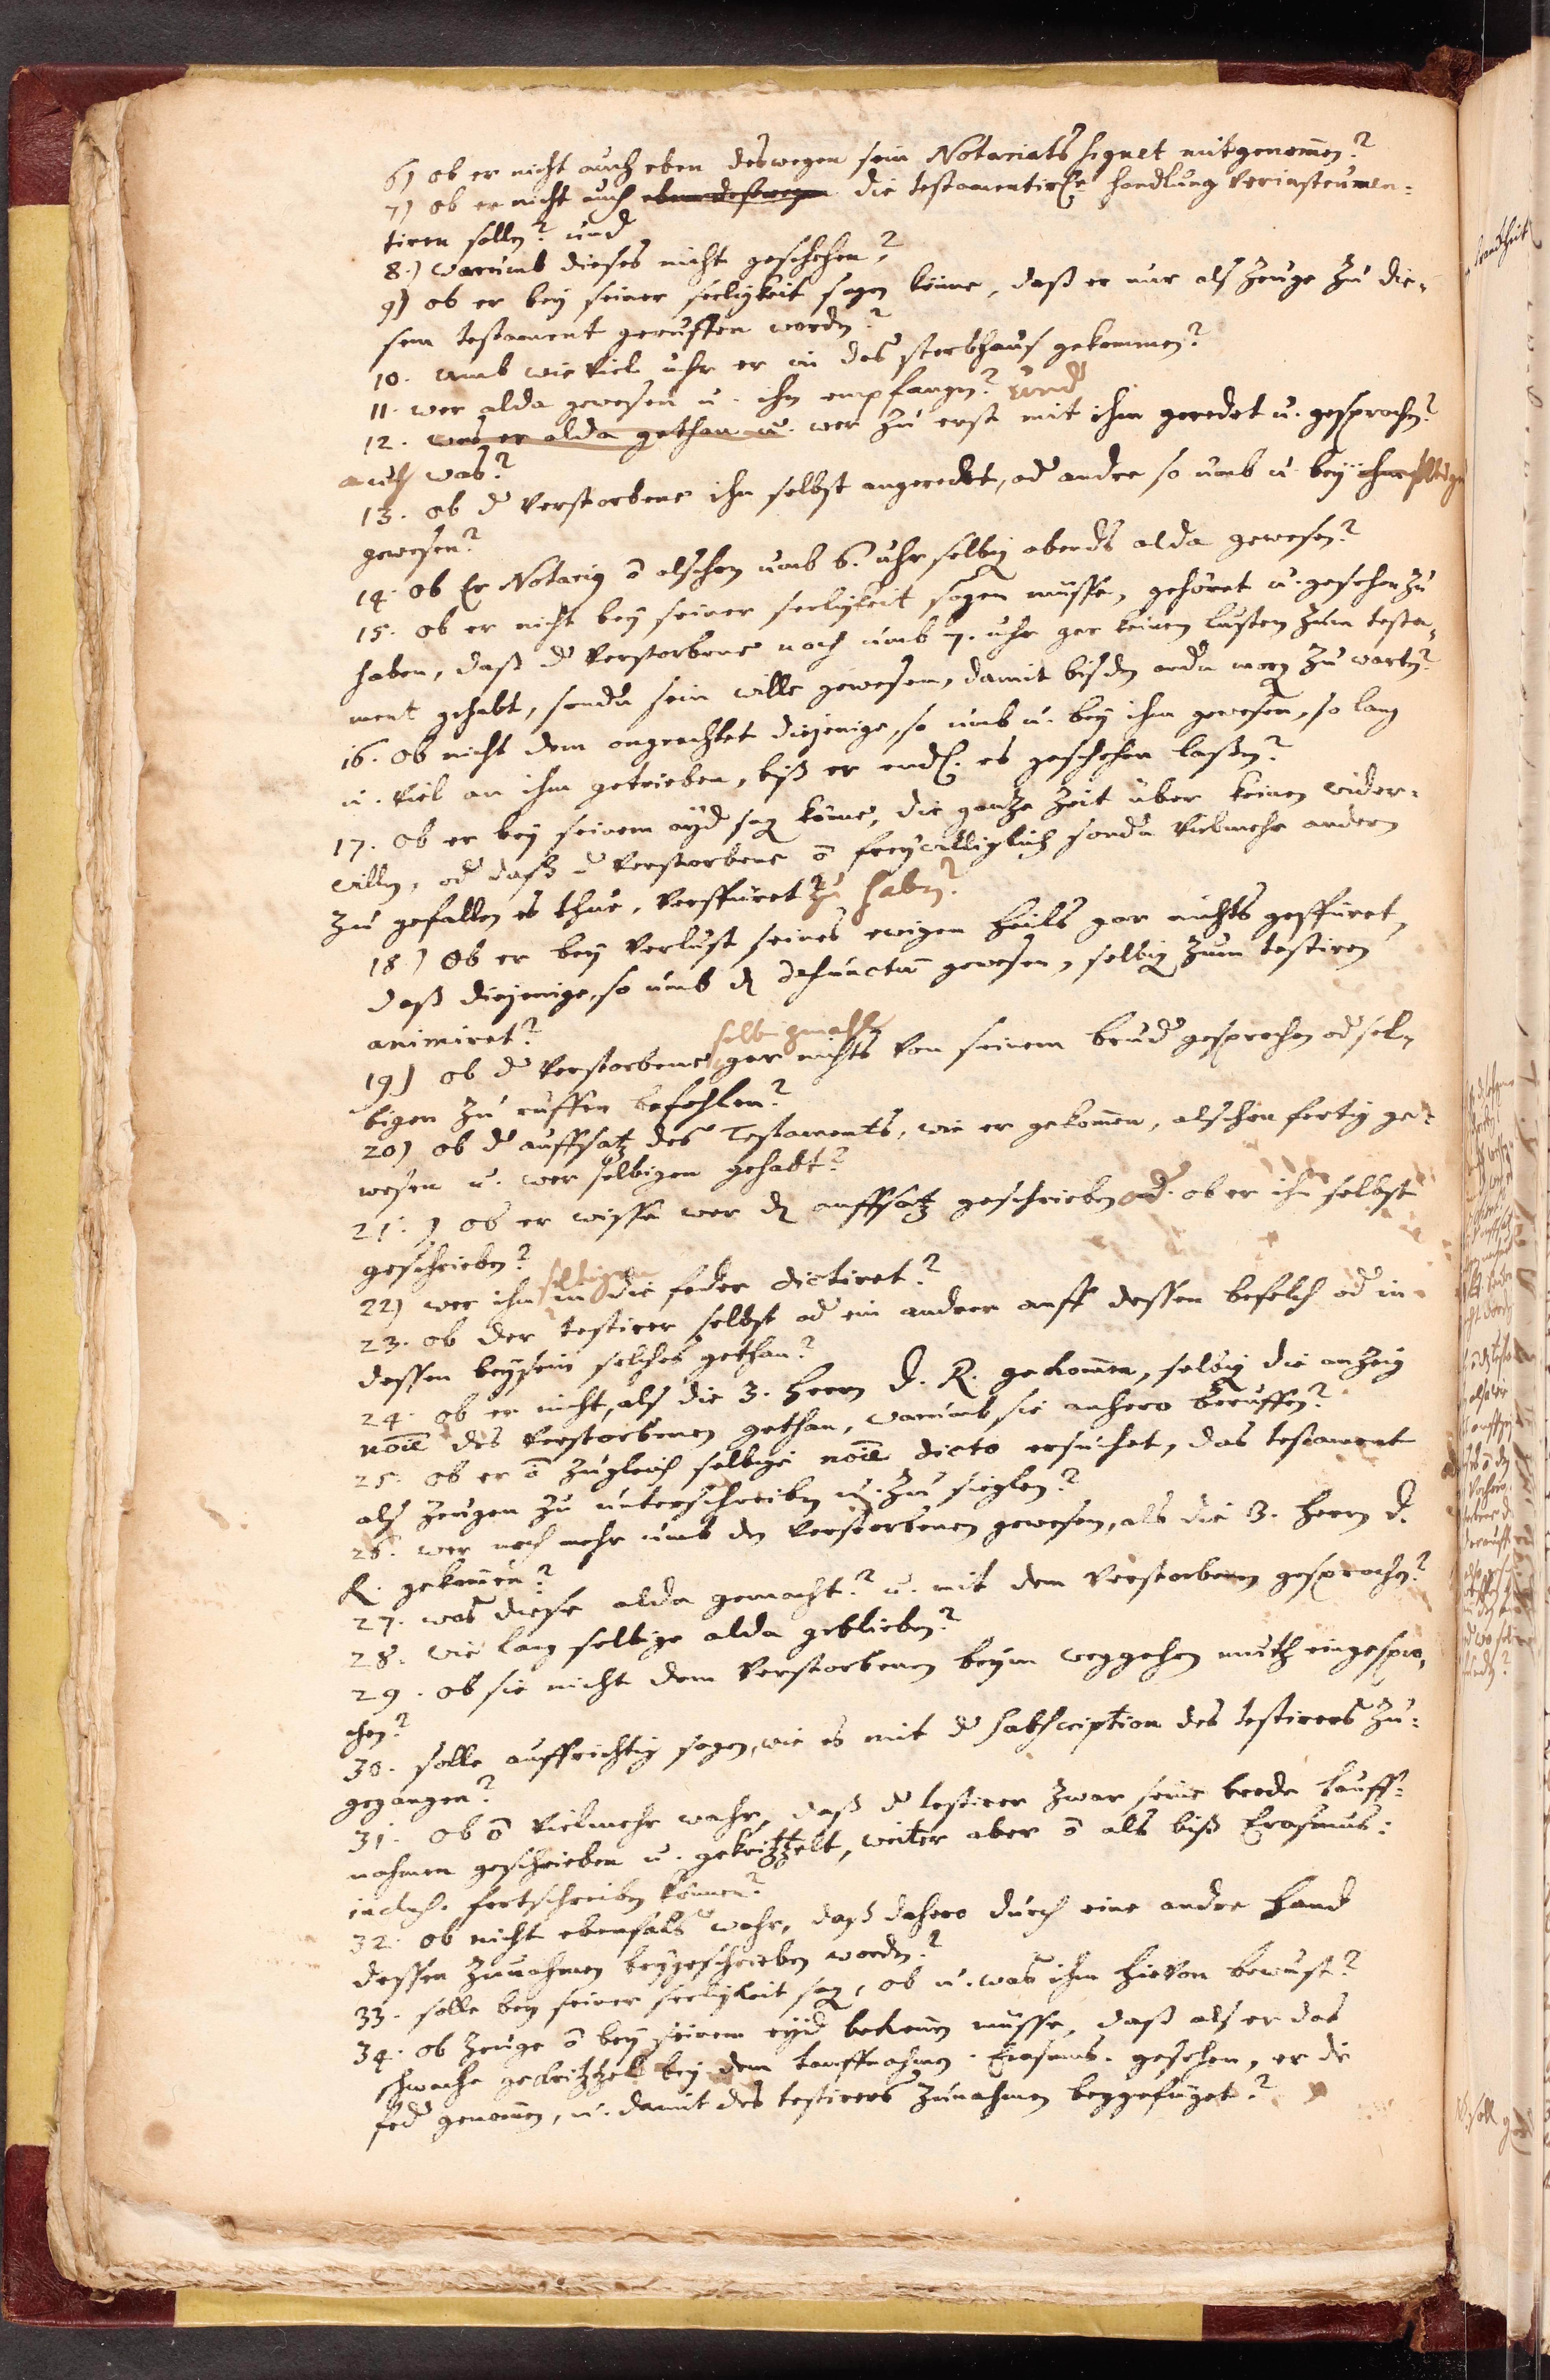 6) ob er nicht auch eben deswegen sein Notariats signet mitgenom̄en?
7) ob er nicht auch eben deswegen die testamentirl. handlung verinstrumen-
tiren sollen? und
8.) warumb dieses nicht geschehen?
9) ob er bey seiner seeligkeit sagen könne, daß er nur als zeuge zu die-
sem testament geruffen worden?
10. umb wie viel uhr er in das sterbhaus gekommen?
11. wer alda gewesen u. ihn empfangen? und
12. was er alda gethan u. wer zu erst mit ihm geredet u. gesprochen?
auch was?
13. ob d verstorbene ihn selbst angeredet, od andre so umb u. bey ihm
gewesen?
14. ob Er Notariq ō alschon umb 6. uhr selbig abends alda gewesen?
15. ob er nicht bey seiner seeligkeit sagen müsse, gehöret u. gesehen zu
haben, daß d verstorbene noch umb 7. uhr gar keinen lusten zum testa-
ment gehabt, sondn sein wille gewesen, damit bis den andn morg zu warten?
16. ob nicht dem ongeachtet diejenige, so umb u. bey ihm gewesen, so lang
u. viel an ihm getrieben, biß er endl. es geschehen laßen?
17. ob er bey seinem ayd sag könne, die gantze zeit über keinen wider-
willen, od daß d verstorbene ō freywilliglich sondn vielmehr andern
zu gefallen es thue, verspüret zu haben?
18) ob er bey verlust seines ewigen heils gar nichts gespüret,
daß diejenige, so umb den defunctum gewesen, selbig zum testiren
animiret?
19) ob d verstorbene selbigmahls gar nichts von seinem brud gesprochen od sel-
bigen zu ruffen befohlen?
20) ob d auffsatz des Testaments, wie er gekom̄en, alschon fertig ge-
wesen u. wer selbigen gehabt?
21.) ob er wisse wer den auffsatz geschrieben od. ob er ihn selbst
geschrieben?
22) wer ihm selbigen in die feder dictiret?
23. ob der testirer selbst od ein anderer auff dessen befelch od in
dessen beysein solches gethan?
24. ob er nicht, als die 3. Herrn d. R. gekom̄en, selbig die anzeig
noīe des verstorbenen gethan, warumb sie anhero beruffen?
25. ob er ō zugleich selbige noīe dicto ersuchet, das testament
als zeugen zu unterschreiben u. zu sieglen?
26. wer noch mehr umb den verstorbenen gewesen, als die 3. Herrn d.
R. gekom̄en?
27. was diese alda gemacht? u. mit dem verstorbenen gesprochen?
28. wie lang selbige alda geblieben?
29. ob sie nicht dem verstorbenen beym weggehen muth eingespro-
chen?
30. solle auffrichtig sagen, wie es mit d subscription des testirers zu-
gegangen?
31. ob ō vielmehr wahr, daß d testirer zwar seine beede tauff-
nahmen geschrieben u. gekritzelt, weiter aber ō als biß Erasmus:
inclus. fortschreiben können?
32. ob nicht ebenfals wahr, daß dahero durch eine andre hand
dessen zunahmen beygeschrieben worden?
33. solle bey seiner seeligkeit sag, ob u. was ihm hievon bewust?
34. ob zeuge ō bey seinem eyd bekennen müsse, daß als er das
schwache gekritzel bey dem tauffnahmen Erasmus. gesehen, er die
fed genom̄en, u. damit des testirers zunahmen beygefüget?